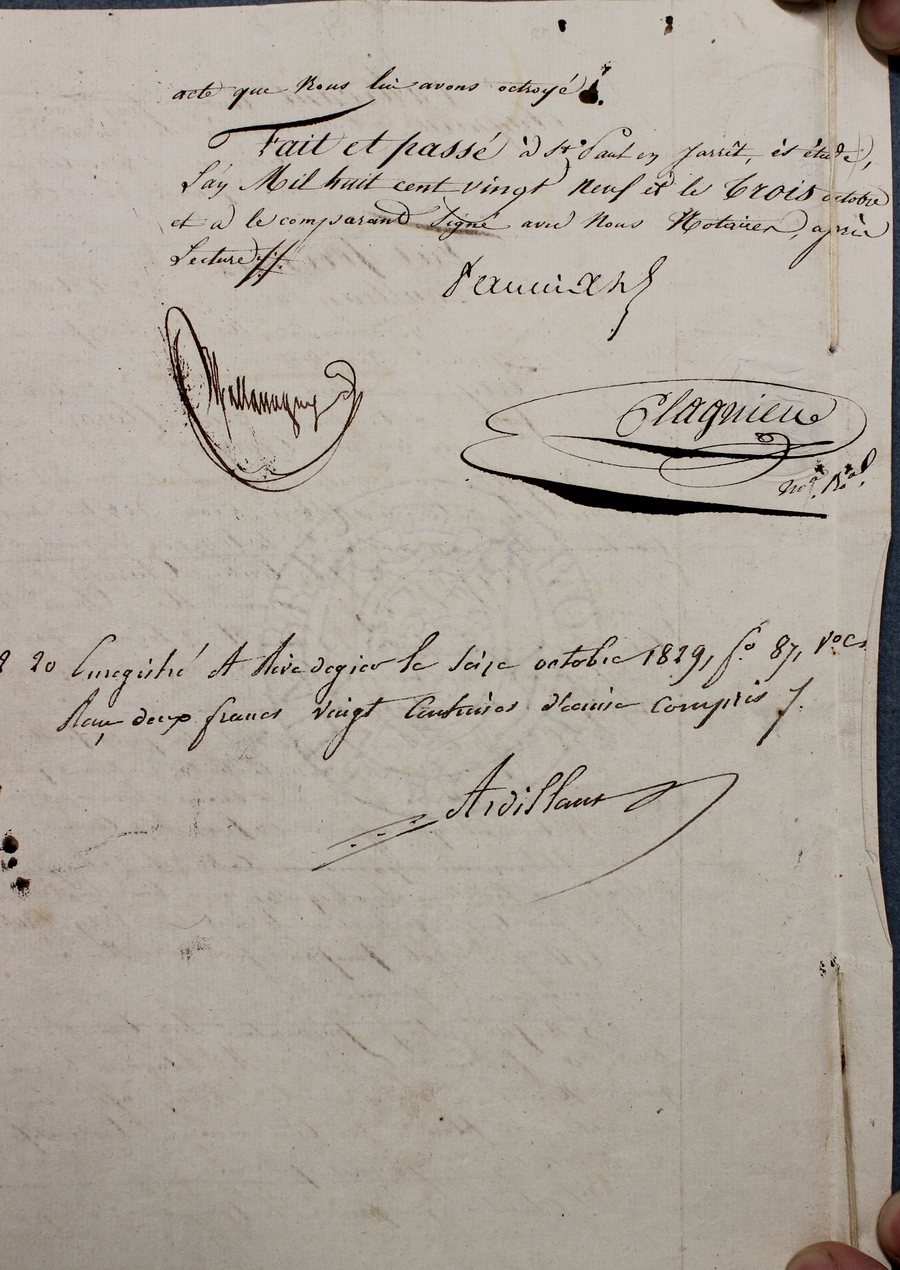 acte que Nous lui avons octroyé.
Fait et passé à St. Paul en Jarrêt, ès étude,
L'an Mil huit cent vingt Neuf et le Trois octobre
et a le comparant signé avec Nous Notaires, après
Lecture //.
Plagnieu
Enregistré à Rive de gier le seize octobre 1829, fo 87, Vo c
Reçu deux francs vingt Centimes décime compris /.
2 20
Ardillaux